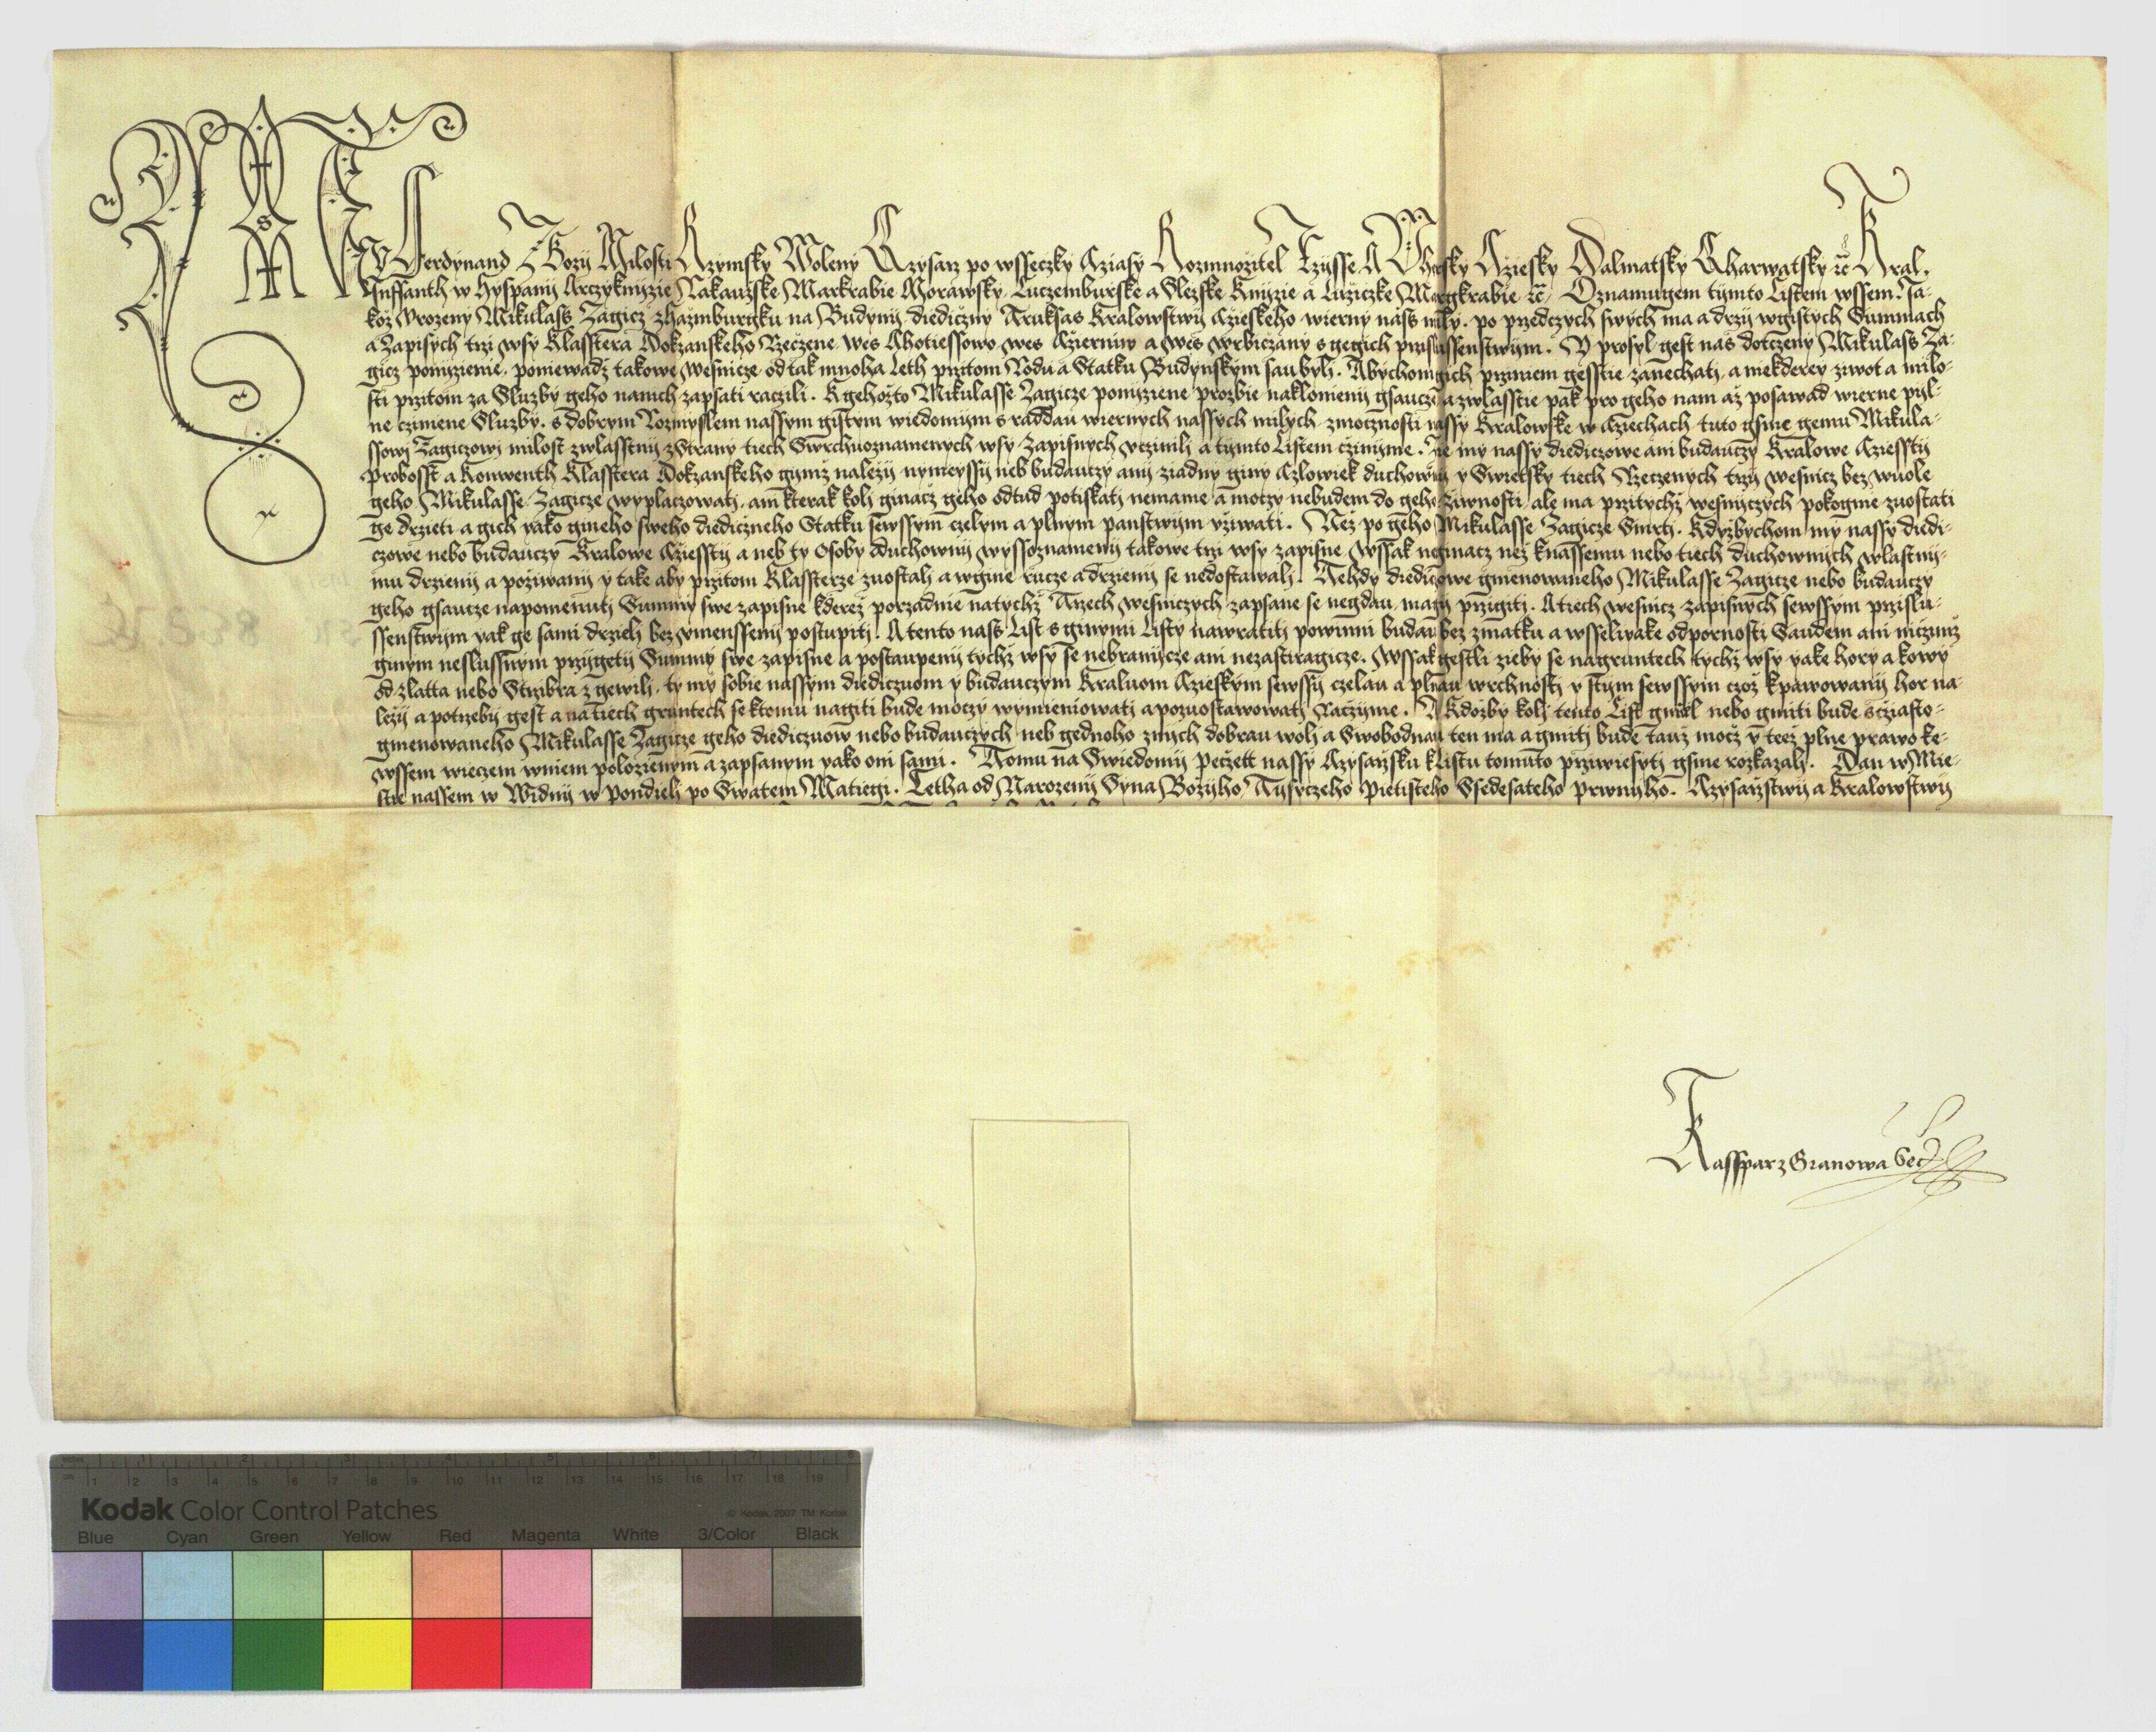 MY Ferdynand Z Bozy Milosti Rzymsky Woleny Czysarz po wsseczky Cziasy Rozmnozitel Rzysse A Vhersky Cziesky Dalmatsky Charwatsky ꝛc̃ Kral.
Inffanth w Hyspanij Arczyknijzie Rakauske Markrabie Morawsky Luczemburske a Slezske Knijzie a Luziczke Margkrabie ꝛc̃, Oznamugem tijmto Listem wssem. Ja-
koz Vrozeny Mikulass Zagicz zhazmburgku na Budynij diediczny Truksas Kralowstwij Czieskeho wierny nass mily. po przedczych swych ma a drzij wgistych Summach
a Zapisych trzi wsy Klasstera Dokzanskeho Rzeczene, Wes Chotiessowo, wes Czierniw a wes Wrbiczany s gegich przislussenstwijm. Y prosyl gest nas dotczeny Mikulass Za-
gicz ponijzienie, poniewadz takowe Wesnicze od tak mnoha Leth przitom Rodu a Statku Budynskym sau byli. Abychom gich przitiem gesstie zanechati, a niekderey ziwot a milo-
sti przitom za Sluzby geho nanich zapsati raczili. K gehozto Mikulasse Zagicze ponijziene prozbie naklonieni gsaucze a zwlasstie pak pro geho nam az posawad wierne pijl-
ne czinene Sluzby. s dobrym Rozmyslem nassym gistym wiedomijm s raddau wiernych nassych milych zmocznosti nassy Kralowske w Cziechach tuto gsme gemu Mikula-
ssowj Zagiczowj milost zwlasstnij zStrany tiech Swrchuoznamenych wsy Zapisnych vczinilj a tijmto Listem czinijme. Ze my nassy diediczowe ani budauczy Kralowe Cziesstij
Probosst a Konwenth Klasstera Dokzanskeho gymz nalezij nyneyssij neb budauczy anij ziadny giny Czlowiek duchowny y Swietsky tiech Rzeczenych trzij wesnicz bez wuole
geho Mikulasse Zagicze wyplaczowatj, ani kterak kolj ginacz geho odtud potiskatj nemame a moczy nebudem do geho ziwnosti, ale ma przitychz wesnijczych pokogne zuostati
ge drzieti a gich yako gineho sweho diediczneho Statku sewssym czelym a plnym panstwijm vziwati. Nez po geho Mikulasse Zagicze Smrti. Kdyzbychom my nassy diedi-
czowe nebo budauczy Kralowe Cziesstij a neb ty Osoby Duchownij wyssoznamenij takowe trzi wsy zapisne, wssak neginacz nez knassemu nebo tiech duchownych wlastnij-
mu drzienij a poziwanij y take aby przitom Klassterze zuostalj a wgine rucze a drzienij se nedostawalj. Tehdy diediczowe gmenowaneho Mikulasse Zagicze nebo budauczy
geho gsaucze napomenutj Summy swe zapisne kderez porzadnie natychz Trzech wesniczych zapsane se negdau, magij przigiti. A tiech wesnicz zapisnych sewssym przislu-
ssenstwijm yak ge sami drzielj bez vmenssenij postupiti. A tento nass List s ginymi Listy nawratiti powinni budau bez zmatku a wsselikake odpornosti Saudem ani niczimz
ginym neslussnym przigetij Summy swe zapisne a postaupenij tychz wsy se nebranijcze ani nezastiragicze. Wssak gestli zieby se nagruntech tychz wsy yake hory a kowy
od zlatta nebo Strzibra zgewilj, ty my sobie nassym diediczuom y budauczym Kraluom Czieskym sewssij czelau a plnau wrchnosti y stijm sewssym czoz kpawowanij hor na-
lezij a potrzebij gest a natiech gruntech se ktomu nagiti bude moczy wymieniowatj a pozuostawowatj Raczijme. A Kdozby kolj tento List gmiel nebo gmiti bude sczasto-
gmenowaneho Mikulasse Zagicze geho diediczuow nebo budauczych neb gednoho znych dobrau wolj a Swobodnau ten ma a gmiti bude tauz mocz y teez plne prawo ke-
wssem wieczem wniem polozienym a zapsanym yako oni sami. Tomu na Swiedomij Peczett nassy Czysarzsku k Listu tomuto przwiesyti gsme rozkazalj. Dan w Mie-
stie nassem w Widnij w Pondielj po Swatem Matiegi. Letha od Narozenij Syna Bozijho Tysyczeho Pietisteho Ssedesateho prwnijho. Czysarzstwij a Kralowstwij
Kassparz Granowa Sec̄
Kodak Color Control Patches
© Kodak, 2007 TM: Kodak
Blue Cyan Green Yellow Red Magenta White 3/Color Black